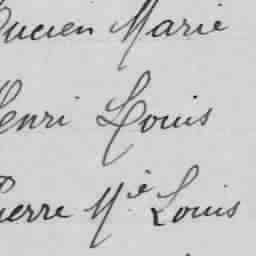 Lucien Marie
Henri Louis
Pierre M.ie Louis